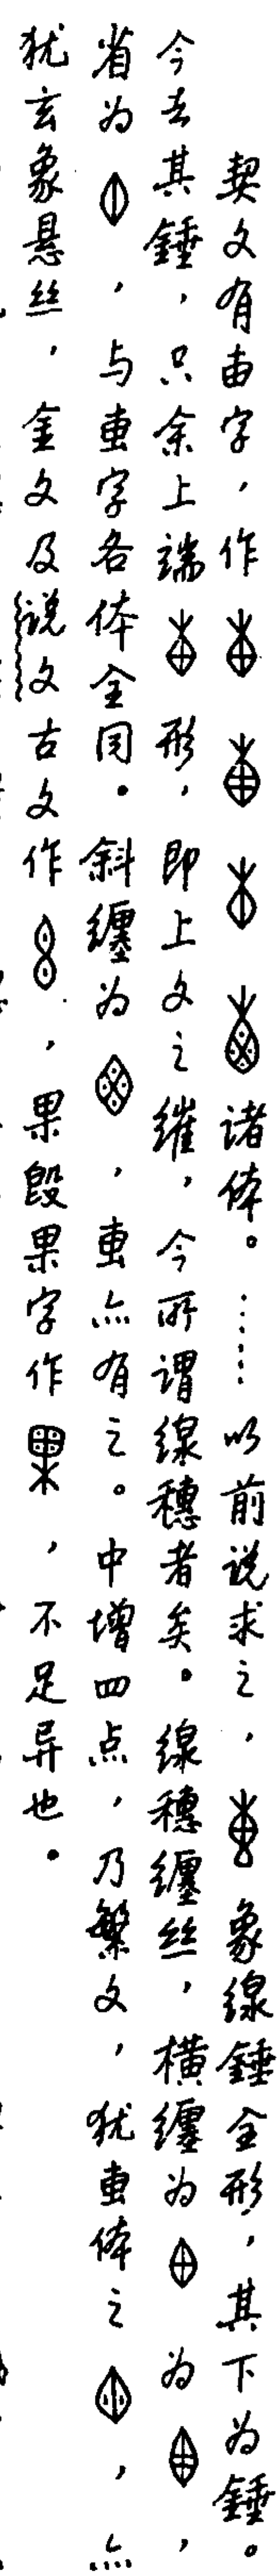 契文有由字，作诸体。……以前说求之，象线锤全形，其下为锤。
今去其锤，只余上端形，即上文之繀，今所谓线穗者矣。线穗缠丝，横缠为为，
省为，与叀字各体全同。斜缠为，叀亦有之。中增四点，乃繁文，犹叀体之，亦
犹玄象悬丝，金文及说文古文作，果𣪘果字作，不足异也。